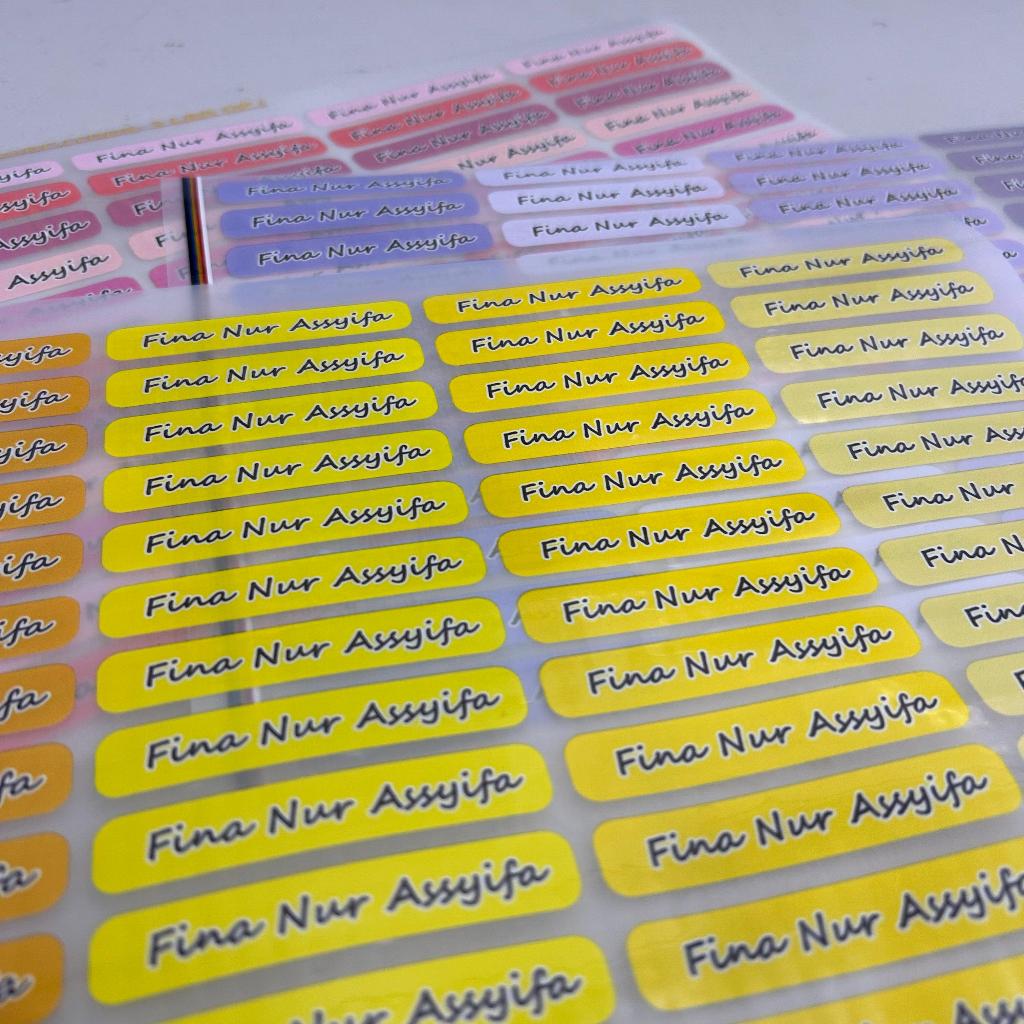 Fina Nur Assyifa
Fina Nur Assyifa
Fina Nur Assyifa
Fina Nur Assyifa
Fina Nur Assyifa
Fina Nur Assyifa
Nur Assyifa
Fina Nur Assyifa
Fina Nur Assyifa
Fina Nur Assyifa
Fina Nur Assyifa
Fina Nur Assyifa
Fina Nur Assyifa
Fina Nur Assyifa
Fina Nur Assyifa
Fina Nur Assyifa
Fina Nur Assyifa
Fina Nur Assyifa
Fina Nur Assyifa
Fina Nur Assyifa
Fina Nur Assyifa
Fina Nur Assyifa
Fina Nur Assyifa
Fina Nur Assyifa
Fina Nur Assyifa
Fina Nur Assyifa
Fina Nur Assyifa
Fina Nur Assyifa
Fina Nur Assyifa
Fina Nur Assyifa
Fina Nur Assyifa
Fina Nur
Fina Nur Assyifa
Fina Nur Assyifa
Fina
Fina Nur Assyifa
Fina Nur Assyifa
Fina Nur Assyifa
Fina Nur Assyifa
Fina Nur Assyifa
Fina Nur Assyifa
Fina Nur Assyifa
Fina Nur Assyifa
Fina Nur Assyifa